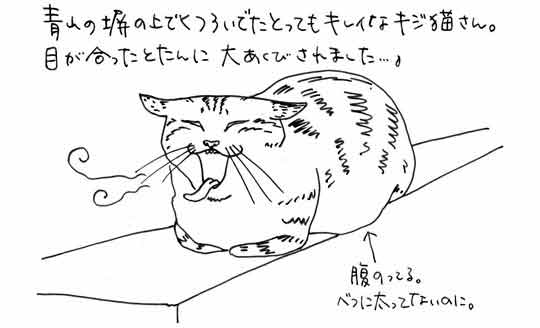 青山の塀の上でくつろいでたとってもキレイなキジ猫さん。
目が合ったとたんに大あくびされました…。
腹のってる。
べつに太ってないのに。